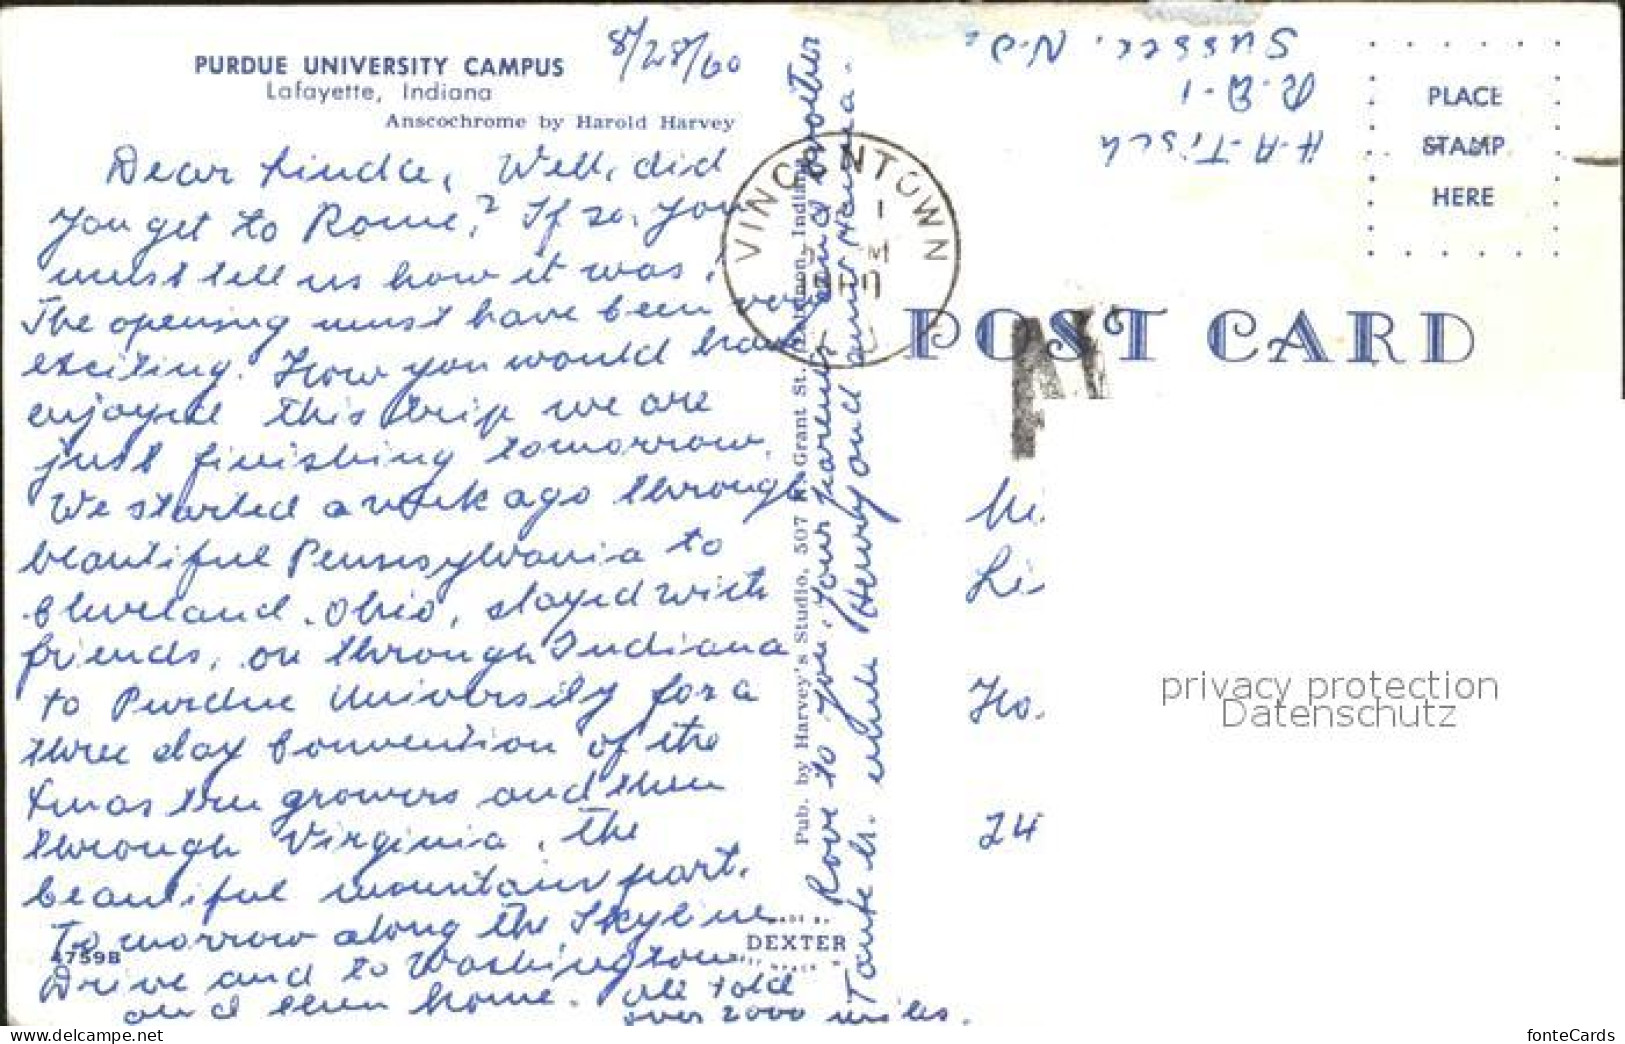 PURDUE UNIVERSITY CAMPUS
Lafayette, Indiana
Anscochrome by Harold Harvey
8/28/60
Dear Linda, Well, did
you get to Rome? If so, you
must tell us how it was!
The opening must have been very
exciting. How you would have
enjoyed this trip we are
just finishing tomorrow.
We started a week ago through
beautiful Pennsylvania to
Cleveland, Ohio, stayed with
friends, on through Indiana
to Purdue University for a
three day Convention of the
Xmas tree growers and then
through Virginia, the
beautiful mountain part.
Tomorrow along the Skyline
Drive and to Washington
and then home. All told
over 2000 miles.
4759B
Love to you, your parents and brother
Tante Li. Uncle Henry and Hanna.
Pub. by Harvey's Studio, 507 N. Grant St., Indiana
MADE BY
DEXTER
H-A-Tisch
R-D-1
Sussex, N.J.
PLACE
STAMP
HERE
VINCENTOWN
POST CARD
Li
Ho.
24
privacy protection
Datenschutz
www.delcampe.net
fonteCards